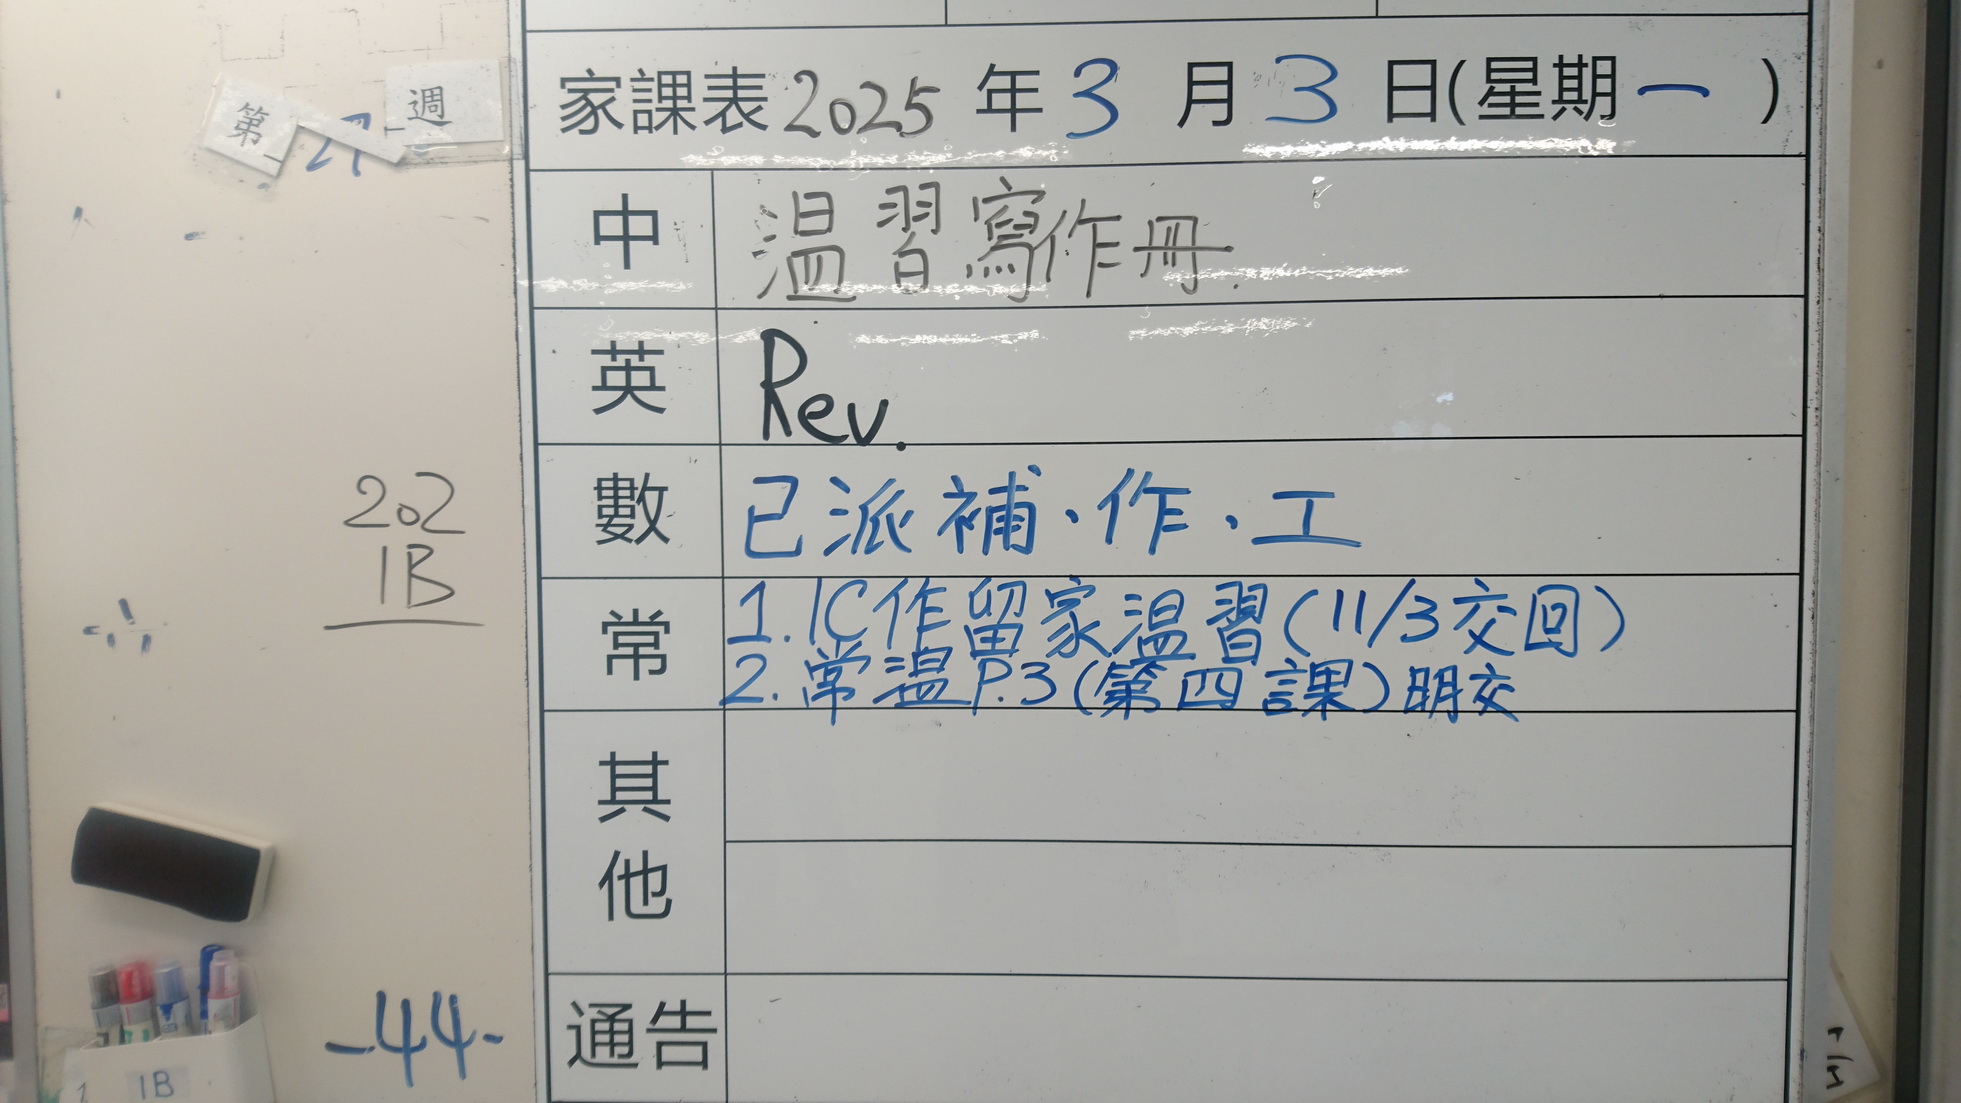 第 27 週
家課表 2025 年 3 月 3 日(星期 一 )
中 温習寫作冊.
英 Rev.
數 已派補、作、工
常 1. 1C作留家温習(11/3交回)
2. 常温P.3(第四課)明交
其他
通告
202
1B
-44-
1B